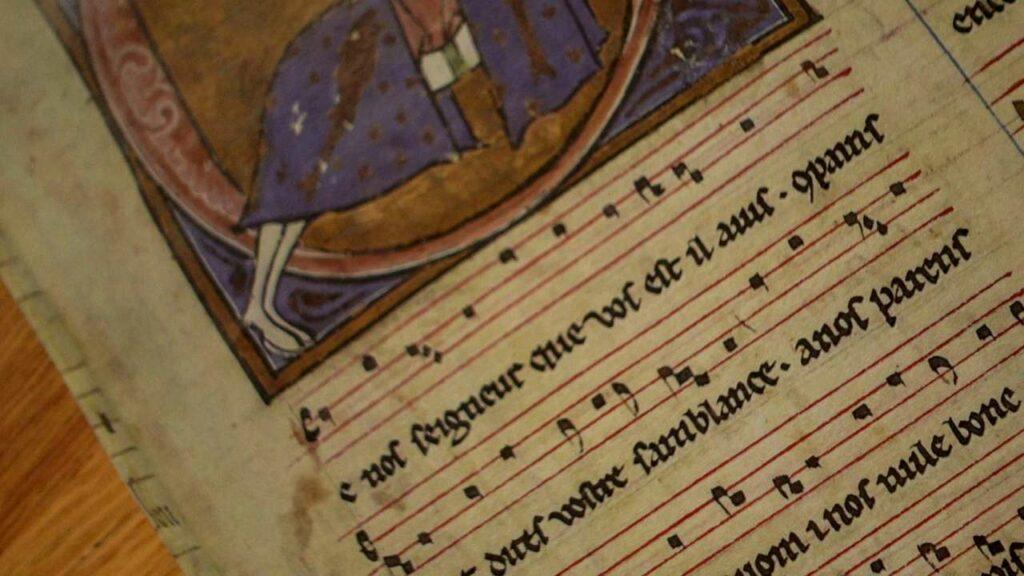 e nos seigneur que vos est il auis . ꝯpains
dites vostre samblance . anos parens
i nos nule bone